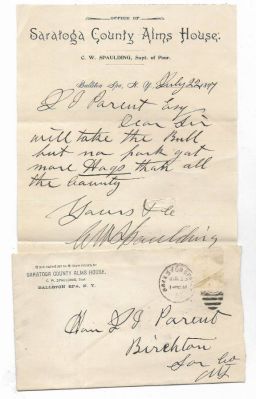 OFFICE OF
Saratoga County Alms House.
C. W. SPAULDING, Supt. of Poor.
Ballston Spa, N. Y. July 22
S J Parent Esq
Dear Sir
will take the Bull
but no pork got
more Hogs than all
the County
Yours &c
C W Spaulding
SARATOGA COUNTY ALMS HOUSE,
C. W. SPAULDING, Supt.
BALLSTON SPA, N. Y.
Hon S J Parent
Birchton
Sar Co
NY